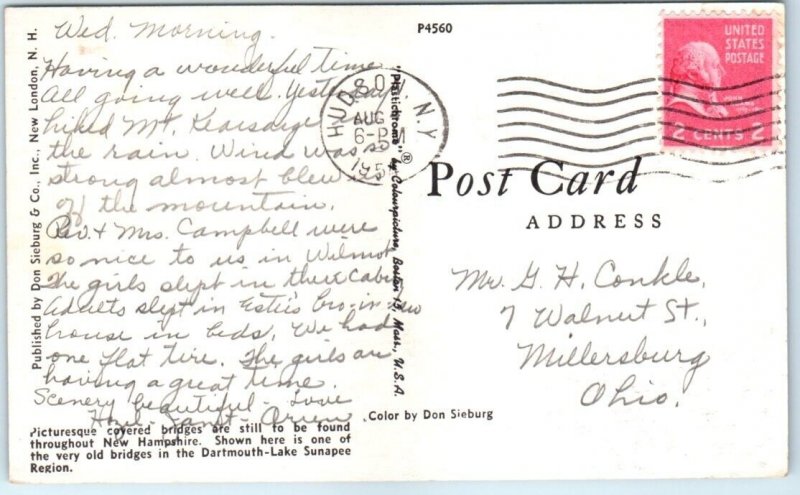 Wed. Morning.
Having a wonderful time
All going well. Yesterday
hiked Mt. Kearsarge
the rain. Wind was so
strong almost blew
off the mountain.
Rev. & Mrs. Campbell were
so nice to us in Wilmot
The girls slept in their Cabin
Adults slept in Estie's bro-in-law
house in beds. We had
one flat tire. The girls are
having a great time.
Scenery beautiful - Love
Hazel - Janet -
Picturesque covered bridges are still to be found
throughout New Hampshire. Shown here is one of
the very old bridges in the Dartmouth-Lake Sunapee
Region.
Published by Don Sieburg & Co., Inc., New London, N. H.
"Plastichrome" ® by Colourpicture, Boston 15, Mass., U.S.A.
P4560
HUDSON N.Y.
AUG
6-PM
195
UNITED
STATES
POSTAGE
2 CENTS 2
Post Card
ADDRESS
Mr. G. H. Conkle,
7 Walnut St.,
Millersburg
Ohio.
Color by Don Sieburg